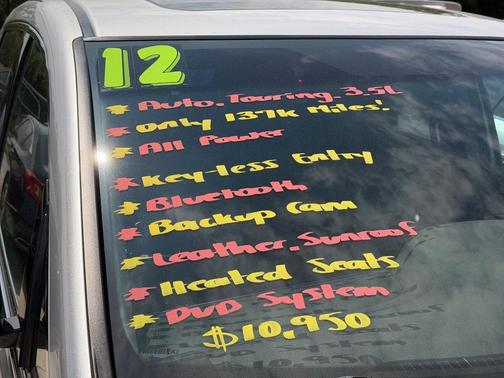 12
* Auto. Touring. 3.5L
* Only 137k Miles!
* All Power
* Key-less Entry
* Bluetooth
* Backup Cam
* Leather. Sunroof
* Heated Seats
* DVD System
$10,950